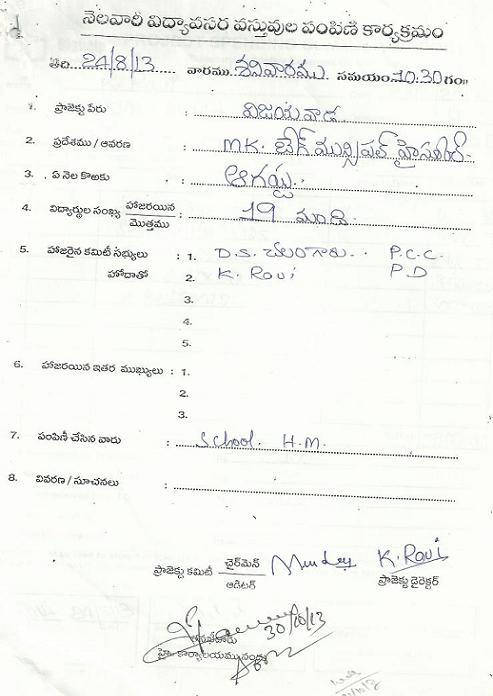 నెలవారి విద్యావసర వస్తువుల పంపిణి కార్యక్రమం
తేది 24/8/13 వారము శనివారము సమయం 10.30 గం॥
1. ప్రాజెక్టు పేరు : విజయవాడ
2. ప్రదేశము / ఆవరణ : MK. బేగ్ మున్సిపల్ హైస్కూల్
3. ఏ నెల కొఱకు : ఆగష్టు
4. విద్యార్థుల సంఖ్య హాజరయిన / మొత్తము : 19 మంది
5. హాజరైన కమిటీ సభ్యులు : 1. D.S. P.C.C.
హోదాతో 2. K. Ravi P.D
3.
4.
5.
6. హాజరయిన ఇతర ముఖ్యులు : 1.
2.
3.
7. పంపిణీ చేసిన వారు : School. H.M.
8. వివరణ / సూచనలు :
ప్రాజెక్టు కమిటీ చైర్‌మెన్ / ఆడిటర్ K. Ravi
ప్రాజెక్టు డైరెక్టర్
30/10/13